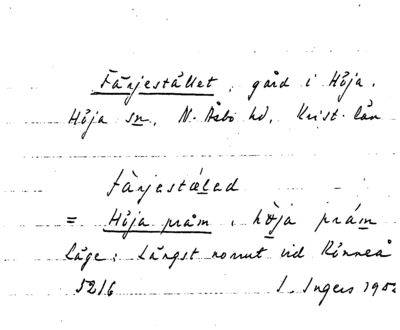 Färjestället, gård i Höja.
Höja sn, N. Åsbo hd, Krist. län
färjestæled
= Höja pråm, höja pråm
Läge: Längst norrut vid Rönneå
5216 I. Ingers 195